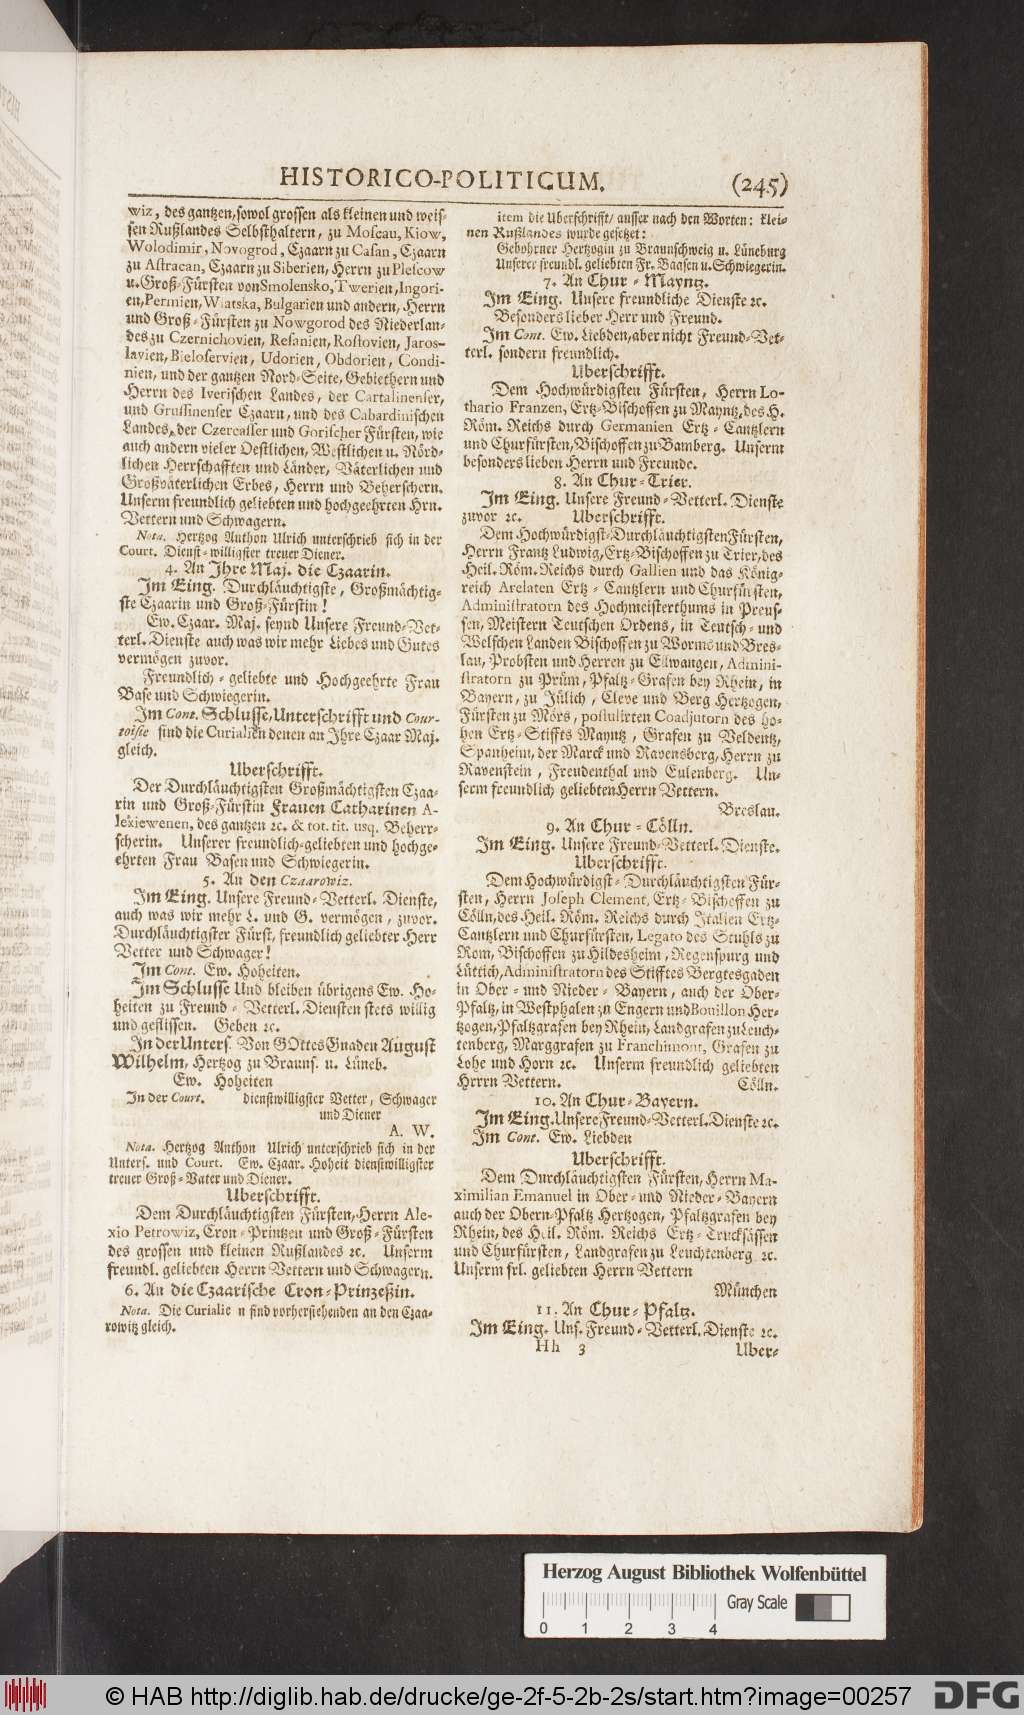 HISTORICO-POLITICUM. (245)
wiz, des gantzen, sowol grossen als kleinen und weis-
sen Rußlandes Selbsthaltern, zu Moscau, Kiow,
Wolodimir, Novogrod, Czaarn zu Casan, Czaarn
zu Astracan, Czaarn zu Siberien, Herrn zu Plescow
u. Groß-Fürsten von Smolensko, Twerien, Ingori-
en, Permien, Wiatska, Bulgarien und andern, Herrn
und Groß-Fürsten zu Nowgorod des Niederlan-
des zu Czernichovien, Resanien, Rostovien, Jaros-
lavien, Bieloservien, Udorien, Obdorien, Condi-
nien, und der gantzen Nord-Seite, Gebiethern und
Herrn des Iverischen Landes, der Cartalinenser,
und Grussinenser Czaarn, und des Cabardinischen
Landes, der Czercasser und Gorischer Fürsten, wie
auch andern vieler Oestlichen, Westlichen u. Nörd-
lichen Herrschafften und Länder, Väterlichen und
Großväterlichen Erbes, Herrn und Beherschern.
Unserm freundlich geliebten und hochgeehrten Hrn.
Vettern und Schwagern.
Nota. Hertzog Anthon Ulrich unterschrieb sich in der
Court. Dienst-willigster treuer Diener.
4. An Ihre Maj. die Czaarin.
Im Eing. Durchläuchtigste, Großmächtig-
ste Czaarin und Groß-Fürstin!
Ew. Czaar. Maj. seynd Unsere Freund-Vet-
terl. Dienste auch was wir mehr Liebes und Gutes
vermögen zuvor.
Freundlich-geliebte und Hochgeehrte Frau
Base und Schwiegerin.
Im Cont. Schlusse, Unterschrifft und Cour-
toisie sind die Curialien denen an Ihre Czaar Maj.
gleich.
Uberschrifft.
Der Durchläuchtigsten Großmächtigsten Czaa-
rin und Groß-Fürstin Frauen Catharinen A-
lexiewenen, des gantzen ꝛc. & tot. tit. usq. Beherr-
scherin. Unserer freundlich-geliebten und hochge-
ehrten Frau Basen und Schwiegerin.
5. An den Czaarowiz.
Im Eing. Unsere Freund-Vetterl. Dienste,
auch was wir mehr L. und G. vermögen, zuvor.
Durchläuchtigster Fürst, freundlich geliebter Herr
Vetter und Schwager!
Im Cont. Ew. Hoheiten.
Im Schlusse Und bleiben übrigens Ew. Ho-
heiten zu Freund-Vetterl. Diensten stets willig
und geflissen. Geben ꝛc.
In der Unters. Von GOttes Gnaden August
Wilhelm, Hertzog zu Brauns. u. Lüneb.
Ew. Hoheiten
In der Court. dienstwilligster Vetter, Schwager
und Diener
A. W.
Nota. Hertzog Anthon Ulrich unterschrieb sich in der
Unters. und Court. Ew. Czaar. Hoheit dienstwilligster
treuer Groß-Vater und Diener.
Uberschrifft.
Dem Durchläuchtigsten Fürsten, Herrn Ale-
xio Petrowiz, Cron-Printzen und Groß-Fürsten
des grossen und kleinen Rußlandes ꝛc. Unserm
freundl. geliebten Herrn Vettern und Schwagern.
6. An die Czaarische Cron-Prinzeßin.
Nota. Die Curialie n sind vorherstehenden an den Czaa-
rowitz gleich.
item die Uberschrifft/ ausser nach den Worten: klei-
nen Rußlandes wurde gesetzet:
Gebohrner Hertzogin zu Braunschweig u. Lüneburg
Unserer freundl. geliebten Fr. Baasen u. Schwiegerin.
7. An Chur-Mayntz.
Im Eing. Unsere freundliche Dienste ꝛc.
Besonders lieber Herr und Freund.
Im Cont. Ew. Liebden, aber nicht Freund-Vet-
terl. sondern freundlich.
Uberschrifft.
Dem Hochwürdigsten Fürsten, Herrn Lo-
thario Franzen, Ertz-Bischoffen zu Mayntz, des H.
Röm. Reichs durch Germanien Ertz-Cantzlern
und Churfürsten, Bischoffen zu Bamberg. Unserm
besonders lieben Herrn und Freunde.
8. An Chur-Trier.
Im Eing. Unsere Freund-Vetterl. Dienste
zuvor ꝛc. Uberschrifft.
Dem Hochwürdigst-Durchläuchtigsten Fürsten,
Herrn Frantz Ludwig, Ertz-Bischoffen zu Trier, des
Heil. Röm. Reichs durch Gallien und das König-
reich Arelaten Ertz-Cantzlern und Churfürsten,
Administratorn des Hochmeisterthums in Preus-
sen, Meistern Teutschen Ordens, in Teutsch- und
Welschen Landen Bischoffen zu Worms und Bres-
lau, Probsten und Herren zu Ellwangen, Admini-
stratorn zu Prüm, Pfaltz-Grafen bey Rhein, in
Bayern, zu Jülich, Cleve und Berg Hertzogen,
Fürsten zu Mörs, postulirten Coadjutorn des ho-
hen Ertz-Stiffts Mayntz, Grafen zu Veldentz,
Spanheim, der Marck und Ravensberg, Herrn zu
Ravenstein, Freudenthal und Eulenberg. Un-
serm freundlich geliebten Herrn Vettern.
Breslau.
9. An Chur-Cölln.
Im Eing. Unsere Freund-Vetterl. Dienste.
Uberschrifft.
Dem Hochwürdigst-Durchläuchtigsten Für-
sten, Herrn Joseph Clement, Ertz-Bischoffen zu
Cölln, des Heil. Röm. Reichs durch Italien Ertz-
Cantzlern und Churfürsten, Legato des Stuhls zu
Rom, Bischoffen zu Hildesheim, Regenspurg und
Lüttich, Administratorn des Stifftes Bergtesgaden
in Ober- und Nieder-Bayern, auch der Ober-
Pfaltz, in Westphalen zu Engern und Bouillon Her-
tzogen, Pfaltzgrafen bey Rhein, Landgrafen zu Leuch-
tenberg, Marggrafen zu Franchimont, Grafen zu
Lohe und Horn ꝛc. Unserm freundlich geliebten
Hrrrn Vettern. Cölln.
10. An Chur-Bayern.
Im Eing. Unsere Freund-Vetterl. Dienste ꝛc.
Im Cont. Ew. Liebden
Uberschrifft.
Dem Durchläuchtigsten Fürsten, Herrn Ma-
ximilian Emanuel in Ober- und Nieder-Bayern
auch der Obern-Pfaltz Hertzogen, Pfaltzgrafen bey
Rhein, des Heil. Röm. Reichs Ertz-Trucksässen
und Churfürsten, Landgrafen zu Leuchtenberg ꝛc.
Unserm frl. geliebten Herrn Vettern
München
11. An Chur-Pfaltz.
Im Eing. Uns. Freund-Vetterl. Dienste ꝛc.
Hh 3 Uber-
Herzog August Bibliothek Wolfenbüttel
Gray Scale
0 1 2 3 4
© HAB http://diglib.hab.de/drucke/ge-2f-5-2b-2s/start.htm?image=00257 DFG